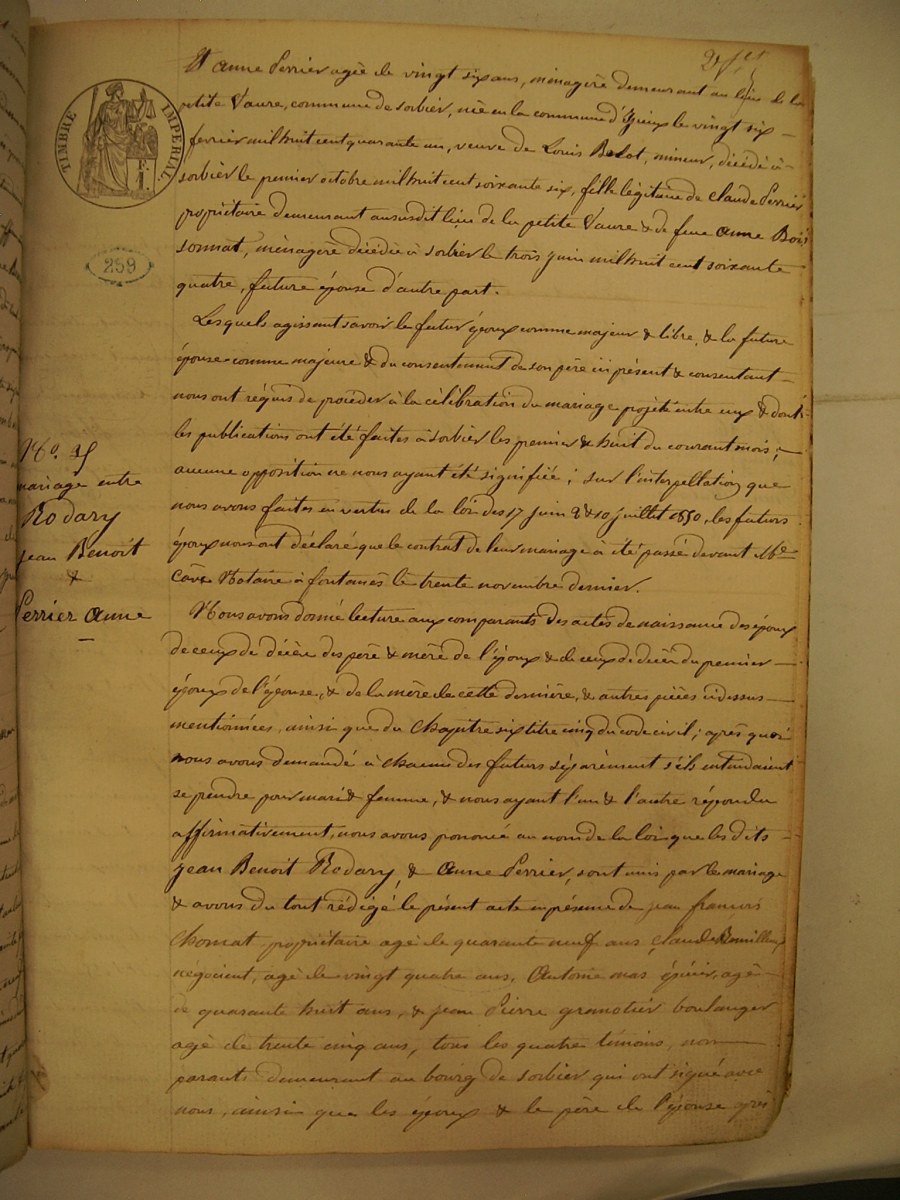 TIMBRE IMPERIAL
259
Et anne Perrier agée de vingt six ans, ménagère demeurant au lieu de la
petite Vaure, commune de sorbier, née en la commune d' le vingt six
fevrier mil huit cent quarante un, veuve de Louis Belot, mineur, décédé à
sorbier le premier octobre mil huit cent soixante six, fille légitime de claude Perrier
propriétaire demeurant au susdit lieu de la petite Vaure & de feue anne Bois
sonnat, ménagère décédée à sorbier le trois juin mil huit cent soixante
quatre, future épouse d'autre part.
Lesquels agissant savoir le futur époux comme majeur & libre, & la future
épouse comme majeure & du consentement de son père ici présent & consentant
nous ont réquis de procéder à la célébration du mariage projeté entre eux & dont
les publications ont été faites à sorbier les premier & huit du courant mois;
aucune opposition ne nous ayant été signifiée; sur l'interpellation que
nous avons faites en vertu de la loi des 17 juin & 10 juillet 1850, les futurs
époux nous ont déclaré que le contrat de leur mariage à été passé devant Me
Notaire à fontanès le trente novembre dernier.
No.
mariage entre
Rodary
jean Benoit
&
Perrier anne
Nous avons donné lecture aux comparants des actes de naissance des époux
de ceux de décès des père & mère de l'époux & de ceux de décès du premier
époux de l'épouse, & de la mère de cette dernière, & autres pièces ci dessus
mentionnées, ainsi que du chapitre six titre cinq du code civil; après quoi
nous avons demandé à chacun des futurs séparément s'ils entendaient
se prendre pour mari & femme, & nous ayant l'un & l'autre répondu
affirmativement, nous avons prononcé au nom de la loi que les dits
jean Benoit Rodary, & anne Perrier, sont unis par le mariage
& avons du tout rédigé le présent acte en présence de jean françois
chomat propriétaire agé de quarante neuf ans, claude
négociant, agé de vingt quatre ans, Antoine mas épicier, agé
de quarante huit ans, & jean Pierre granotier boulanger
agé de trente cinq ans, tous les quatre témoins, non
parants demeurant au bourg de sorbier qui ont signé avec
nous, ainsi que les époux & le père de l'épouse près